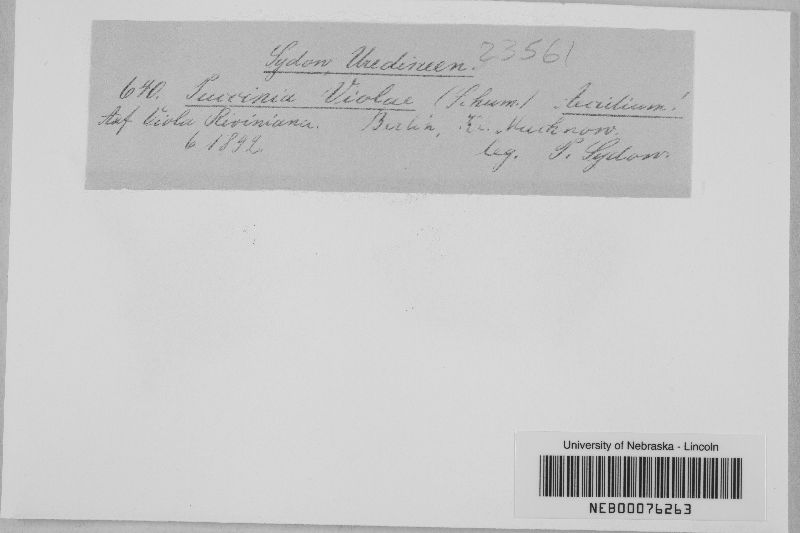 Sydow, Uredineen. 23561
640. Puccinia Violae (Schum.) Aecidium!
Auf Viola Riviniana. Berlin, Kl. Machnow.
6 1892. leg. P. Sydow.
University of Nebraska - Lincoln
NEB00076263